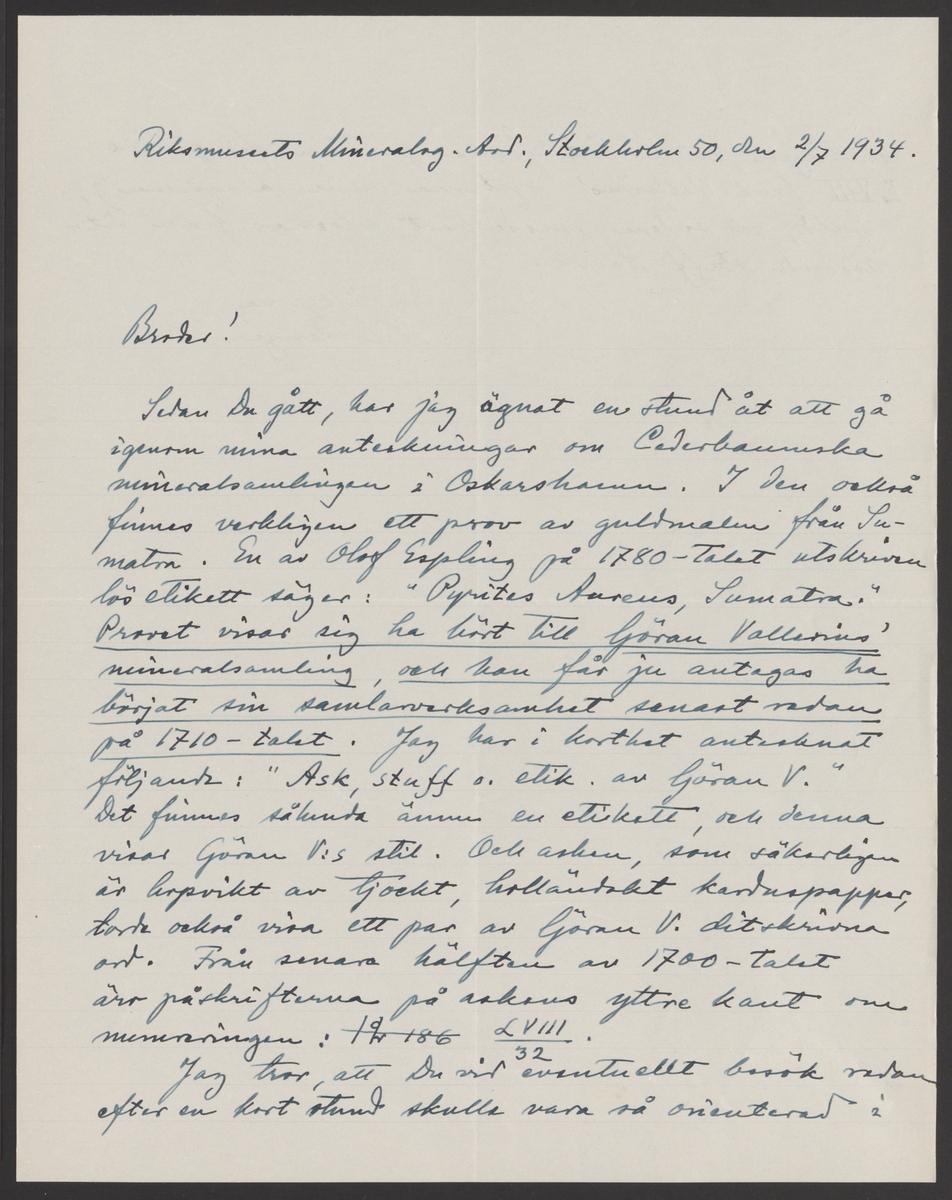 Riksmuseets Mineralog. Avd., Stockholm 50, den 2/7 1934.
Broder!
Sedan Du gått, har jag ägnat en stund åt att gå
igenom mina anteckningar om Cederbaumska
mineralsamlingen i Oskarshamn. I den också
finnes verkligen ett prov av guldmalm från Su-
matra. En av Olof Espling på 1780-talet utskriven
lös etikett säger: "Pyrites Aureus, Sumatra."
Provet visar sig ha hört till Göran Vallerius'
mineralsamling, och han får ju antagas ha
börjat sin samlarverksamhet senast redan
på 1710-talet. Jag har i korthet antecknat
följande: "Ask, stuff o. etik. av Göran V."
Det finnes sålunda ännu en etikett, och denna
visar Göran V:s stil. Och asken, som säkerligen
är hopvikt av tjockt, holländskt karduspapper,
torde också visa ett par av Göran V. ditskrivna
ord. Från senare hälften av 1700-talet
äro påskrifterna på askens yttre kant om
numreringen: 186 LVIII
32 .
Jag tror, att Du vid eventuellt besök redan
efter en kort stund skulle vara så orienterad i